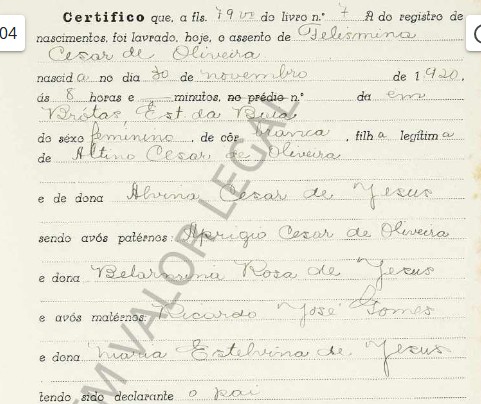 04
Certifico que, a fls. 79vo do livro n.º 7 A do registro de
nascimentos, foi lavrado, hoje, o assento de Felismina
Cesar de Oliveira
nascida no dia 30 de novembro de 1920,
ás 8 horas e minutos, no prédio n.º da em
Brótas Est. da Baia
do séxo feminino, de côr branca, filha legitima
de Altino Cesar de Oliveira
e de dona Alvina Cesar de Jesus
sendo avós patérnos: Aprigio Cesar de Oliveira
e dona Rosa de Jesus
e avós matérnos: Ricardo José Gomes
e dona Maria Estelvina de Jesus
tendo sido declarante o pai
EM VALOR LEGAL